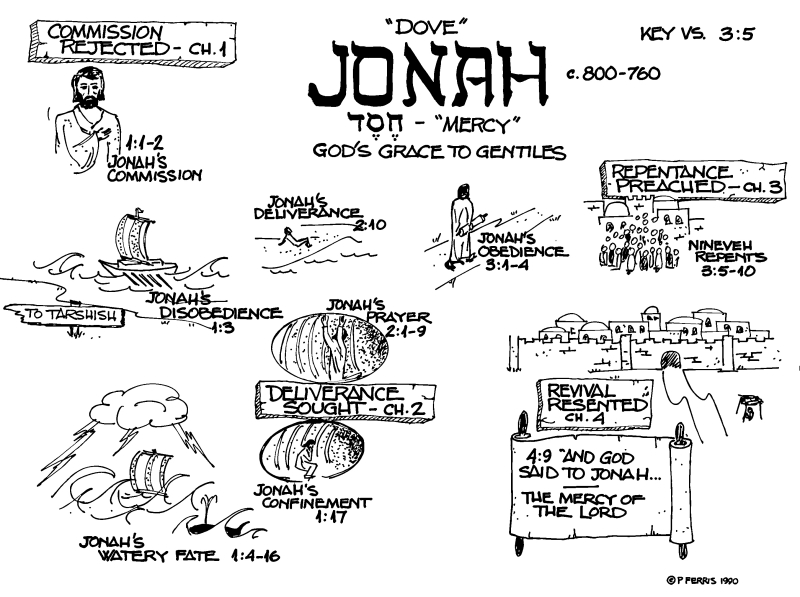 COMMISSION
REJECTED - CH. 1
"DOVE"
JONAH
c. 800-760
KEY VS. 3:5
חֶסֶד - "MERCY"
GOD'S GRACE TO GENTILES
1:1-2
JONAH'S
COMMISSION
JONAH'S
DISOBEDIENCE
1:3
TO TARSHISH
JONAH'S
WATERY FATE 1:4-16
JONAH'S
DELIVERANCE
2:10
JONAH'S
PRAYER
2:1-9
DELIVERANCE
SOUGHT - CH. 2
JONAH'S
CONFINEMENT
1:17
JONAH'S
OBEDIENCE
3:1-4
REPENTANCE
PREACHED - CH. 3
NINEVEH
REPENTS
3:5-10
REVIVAL
RESENTED
CH. 4
4:9 "AND GOD
SAID TO JONAH...
THE MERCY OF
THE LORD
© P FERRIS 1990